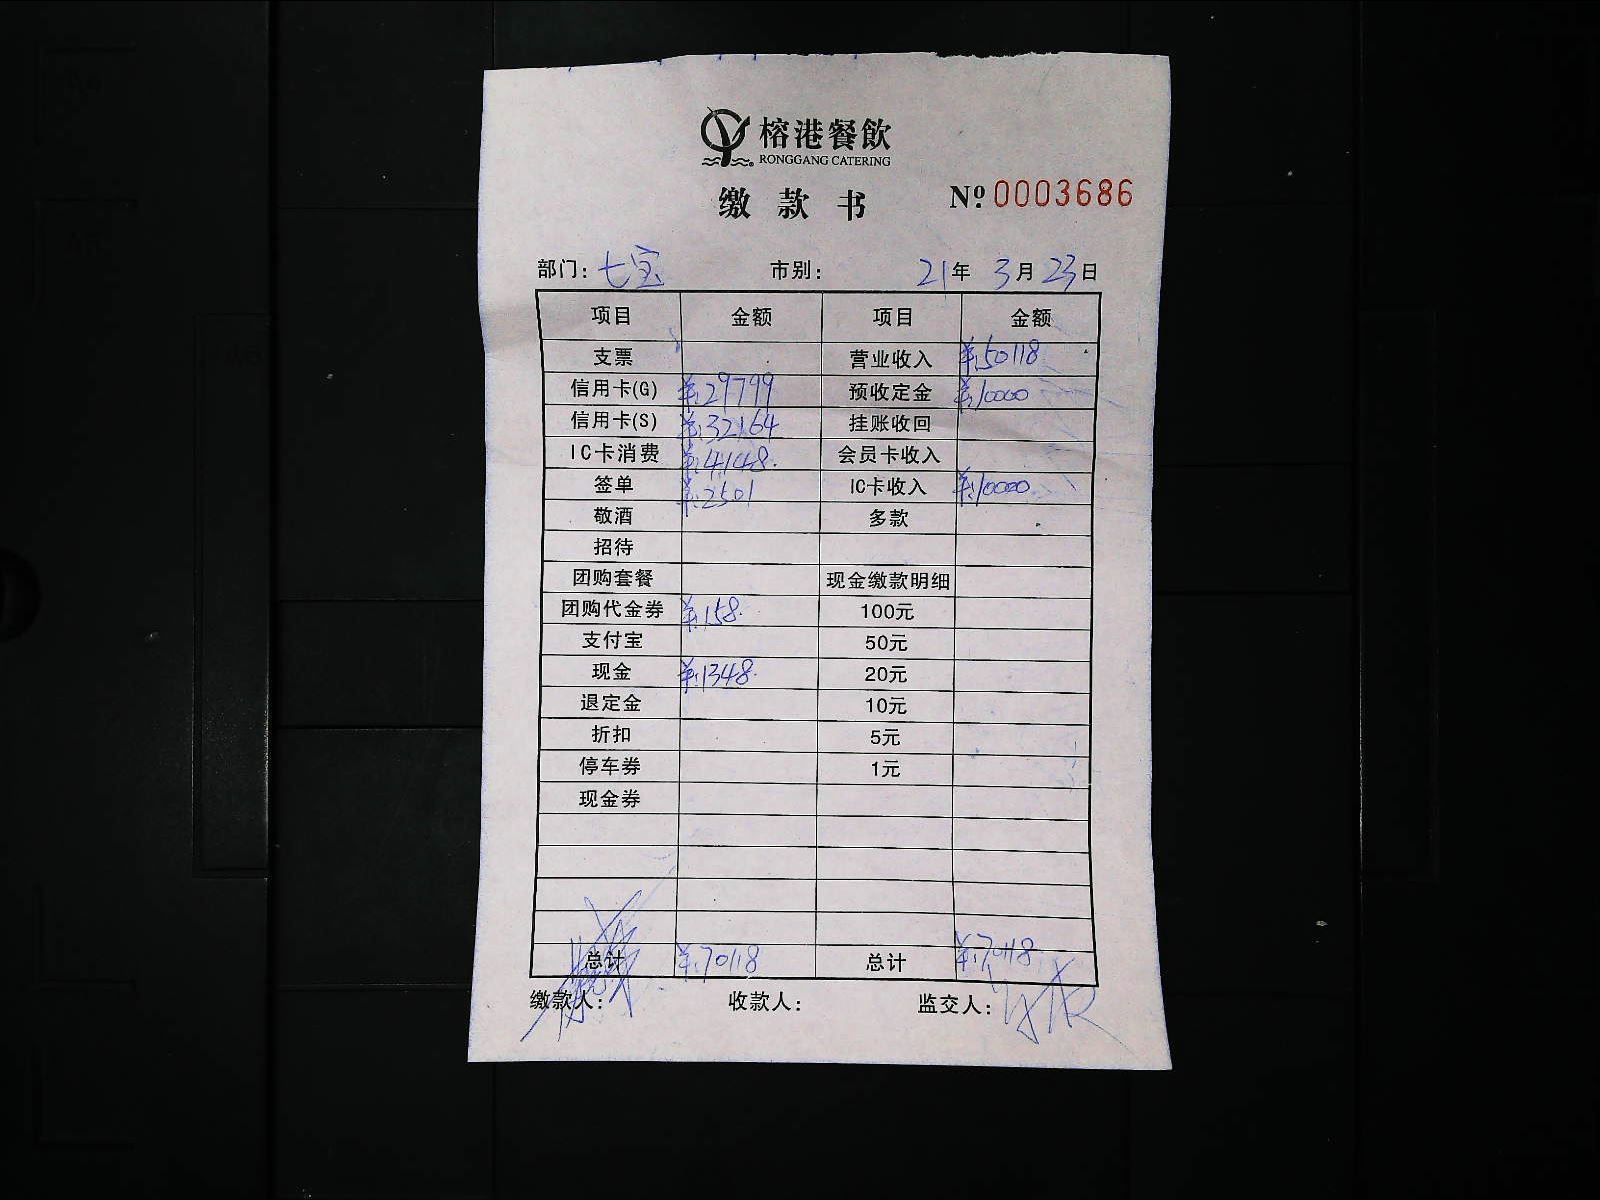 榕港餐飲
RONGGANG CATERING
缴款书 №0003686
部门：七宝 市别： 21年 3月 23日
项目 金额 项目 金额
支票 营业收入 ¥:50118
信用卡(G) ¥:29799 预收定金 ¥:10000
信用卡(S) ¥:32164 挂账收回
IC卡消费 ¥:4148. 会员卡收入
签单 ¥:2501 IC卡收入 ¥:10000
敬酒 多款
招待
团购套餐 现金缴款明细
团购代金券 ¥:158. 100元
支付宝 50元
现金 ¥:1348. 20元
退定金 10元
折扣 5元
停车券 1元
现金券
总计 ¥:70118 总计 ¥:70118
缴款人： 收款人： 监交人：